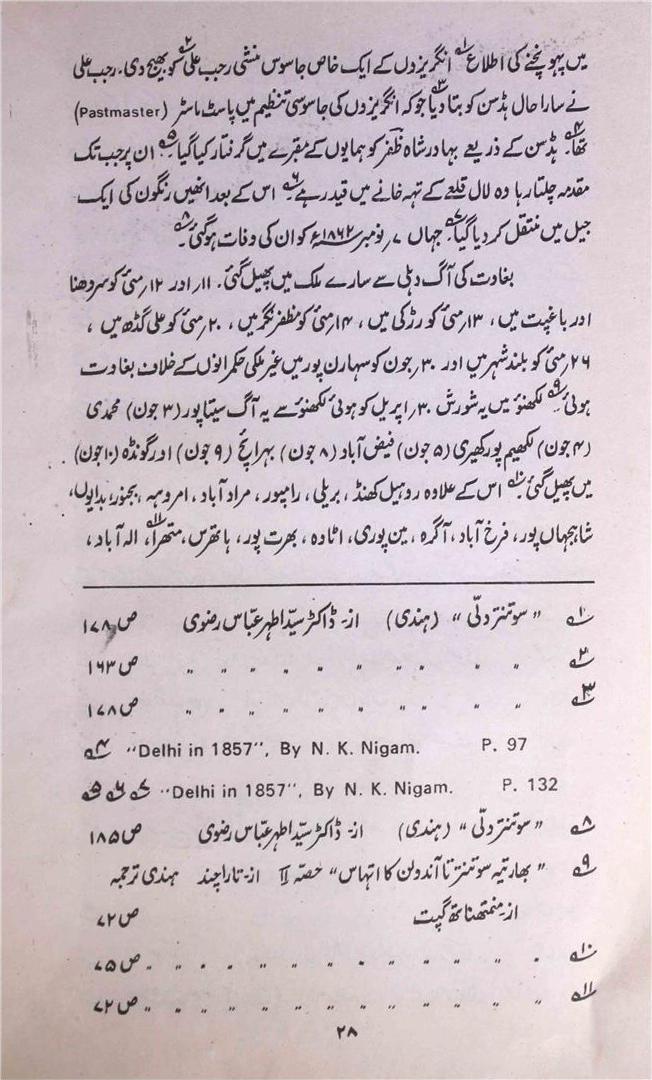 میں پہونچنے کی اطلاع ؎۱ انگریزوں کے ایک خاص جاسوس منشی رجب علی ؎۲ کو بھیج دی۔ رجب علی
نے سارا حال ہڈسن کو بتا دیا ؎۳ جو کہ انگریزوں کی جاسوسی تنظیم میں پاسٹ ماسٹر (Pastmaster)
تھا۔ ؎۴ ہڈسن کے ذریعے بہادر شاہ ظفر کو ہمایوں کے مقبرے میں گرفتار کیا گیا۔ ؎۵ ان پر جب تک
مقدمہ چلتا رہا وہ لال قلعے کے تہہ خانے میں قید رہے۔ ؎۶ اس کے بعد انھیں رنگون کی ایک
جیل میں منتقل کر دیا گیا۔ ؎۷ جہاں ۷؍نومبر ۱۸۶۲ء کو ان کی وفات ہوگئی۔ ؎۸
بغاوت کی آگ دہلی سے سارے ملک میں پھیل گئی۔ ۱۱؍ اور ۱۲؍مئی کو سردھنا
اور باغپت میں، ۱۳؍مئی کو رڑکی میں، ۱۴؍مئی کو مظفر نگر میں، ۲۰؍مئی کو علی گڈھ میں،
۲۶؍مئی کو بلند شہر میں اور ۳۰؍جون کو سہارن پور میں غیر ملکی حکمرانوں کے خلاف بغاوت
ہوئی۔ ؎۹ لکھنؤ میں یہ شورش ۳۰؍اپریل کو ہوئی لکھنؤ سے یہ آگ سیتاپور (۳ جون) محمدی
(۴ جون) لکھیم پور کھیری (۵ جون) فیض آباد (۸ جون) بہرائچ (۹ جون) اور گونڈہ (۱۰ جون)
میں پھیل گئی۔ ؎۱۰ اس کے علاوہ روہیل کھنڈ، بریلی، رامپور، مراد آباد، امروہہ، بجنور، بدایوں،
شاہجہاں پور، فرخ آباد، آگرہ، مین پوری، اٹاوہ، بھرت پور، ہاتھرس، متھرا، ؎۱۱ الہ آباد،
؎۱ "سوتنتر دلّی" (ہندی) از۔ ڈاکٹر سیّد اطہر عبّاس رضوی ص ۱۷۸
؎۲ " " " " " " " " " ص ۱۶۳
؎۳ " " " " " " " " " ص ۱۷۸
؎۴ "Delhi in 1857", By N. K. Nigam. P. 97
؎۵ ؎۶ ؎۷ "Delhi in 1857", By N. K. Nigam. P. 132
؎۸ "سوتنتر دلّی" (ہندی) از۔ ڈاکٹر سیّد اطہر عبّاس رضوی ص ۱۸۵
؎۹ "بھارتیہ سوتنترتا آندولن کا اتہاس" حصّہ II از۔ تارا چند ہندی ترجمہ
از۔ منمتھ ناتھ گپت ص ۷۲
؎۱۰ " " " " " " " " " " " " ص ۷۵
؎۱۱ " " " " " " " " " " " " ص ۷۲
۲۸